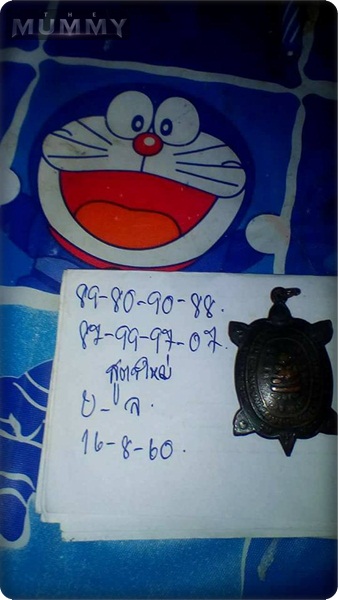 THE
MUMMY
89-80-90-88.
87-99-97-07.
สูตรใหม่
ย-ล.
16-8-60.